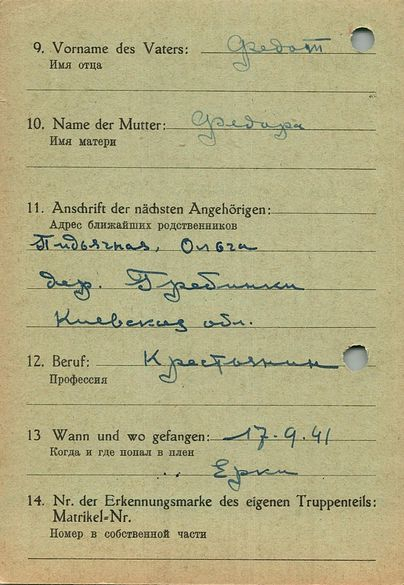 9. Vorname des Vaters: Федот
Имя отца
10. Name der Mutter: Федора
Имя матери
11. Anschrift der nächsten Angehörigen:
Адрес ближайших родственников
Пидьячная, Ольга
дер. Гребинки
Киевская обл.
12. Beruf: Крестьянин
Профессия
13 Wann und wo gefangen: 17.9.41
Когда и где попал в плен
.. Ерки
14. Nr. der Erkennungsmarke des eigenen Truppenteils:
Matrikel-Nr.
Номер в собственной части